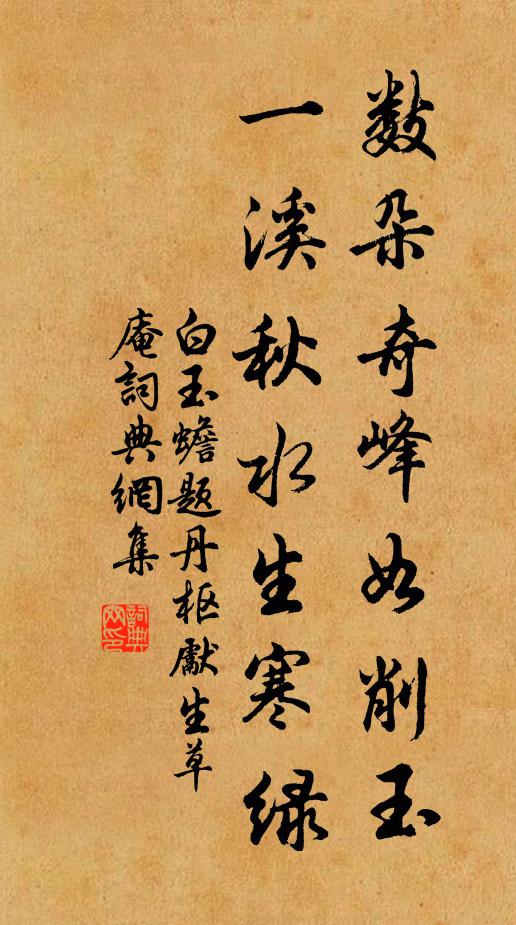 数朵奇峰如削玉
一溪秋水生寒绿
白玉蟾题丹枢獻生草
庵詞典網集
詞典網印